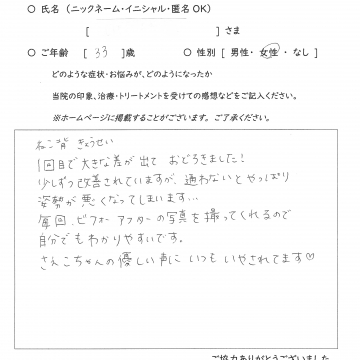 ○ 氏名 （ニックネーム・イニシャル・匿名 OK）
[ ] さま
○ ご年齢 [ 33 ]歳 ○ 性別 [ 男性・ 女性 ・ なし ]
どのような症状・お悩みが、どのようになったか
当院の印象、治療・トリートメントを受けての感想などをご記入ください。
※ホームページに掲載することがございます。ご了承ください。
ねこ背 きょうせい
1回目で大きな差が出て おどろきました!
少しずつ改善されていますが、通わないと やっぱり
姿勢が悪くなってしまいます…
毎回、ビフォーアフターの写真を撮ってくれるので
自分でもわかりやすいです。
さえこちゃんの優しい声に いつも いやされてます♡
ご協力ありがとうございました